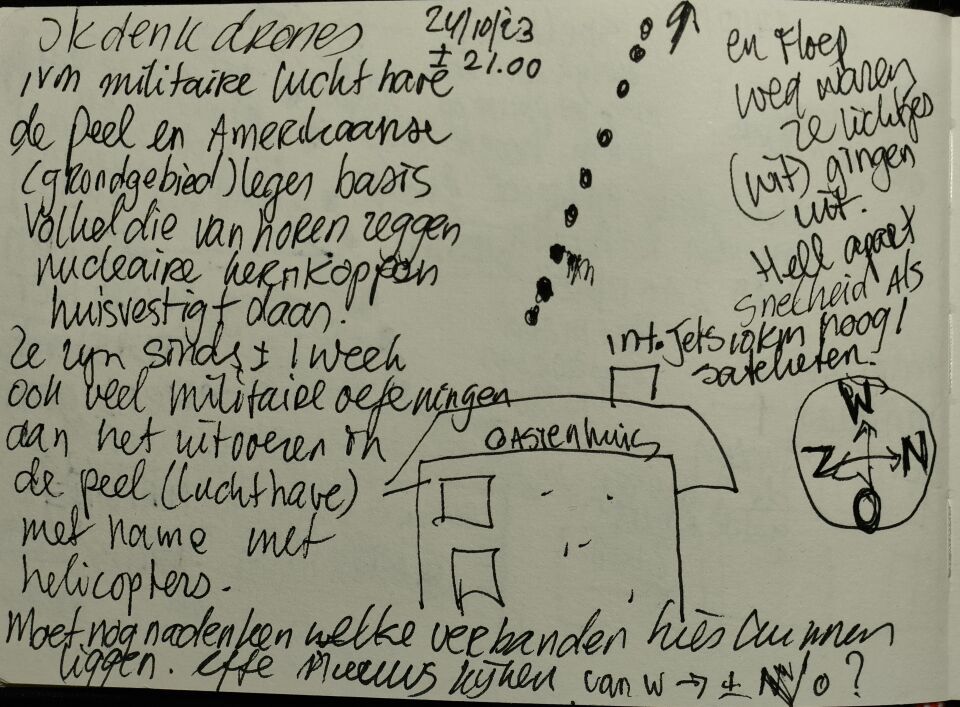 Ik denk drones
ivm militaire luchthave
de Peel en Amerikaanse
(grondgebied) leger basis
Volkel die van horen zeggen
nucleaire kernkoppen
huisvestigt daan!
Ze zijn sinds ± 1 week
ook veel militaire oefeningen
aan het uitvoeren in
de peel. (luchthave)
met name met
helicopters.
Moet nog nadenken welke verbanden hier kunnen
liggen. effe nieuws kijken van W → ± N/O?
24/10/23
± 21.00
en Floep
weg waren
ze lichtjes
(wit) gingen
uit.
Heel apart
Snelheid Als
int. Jets 10km hoog!
satelieten.
Gastenhuis
W
Z N
O